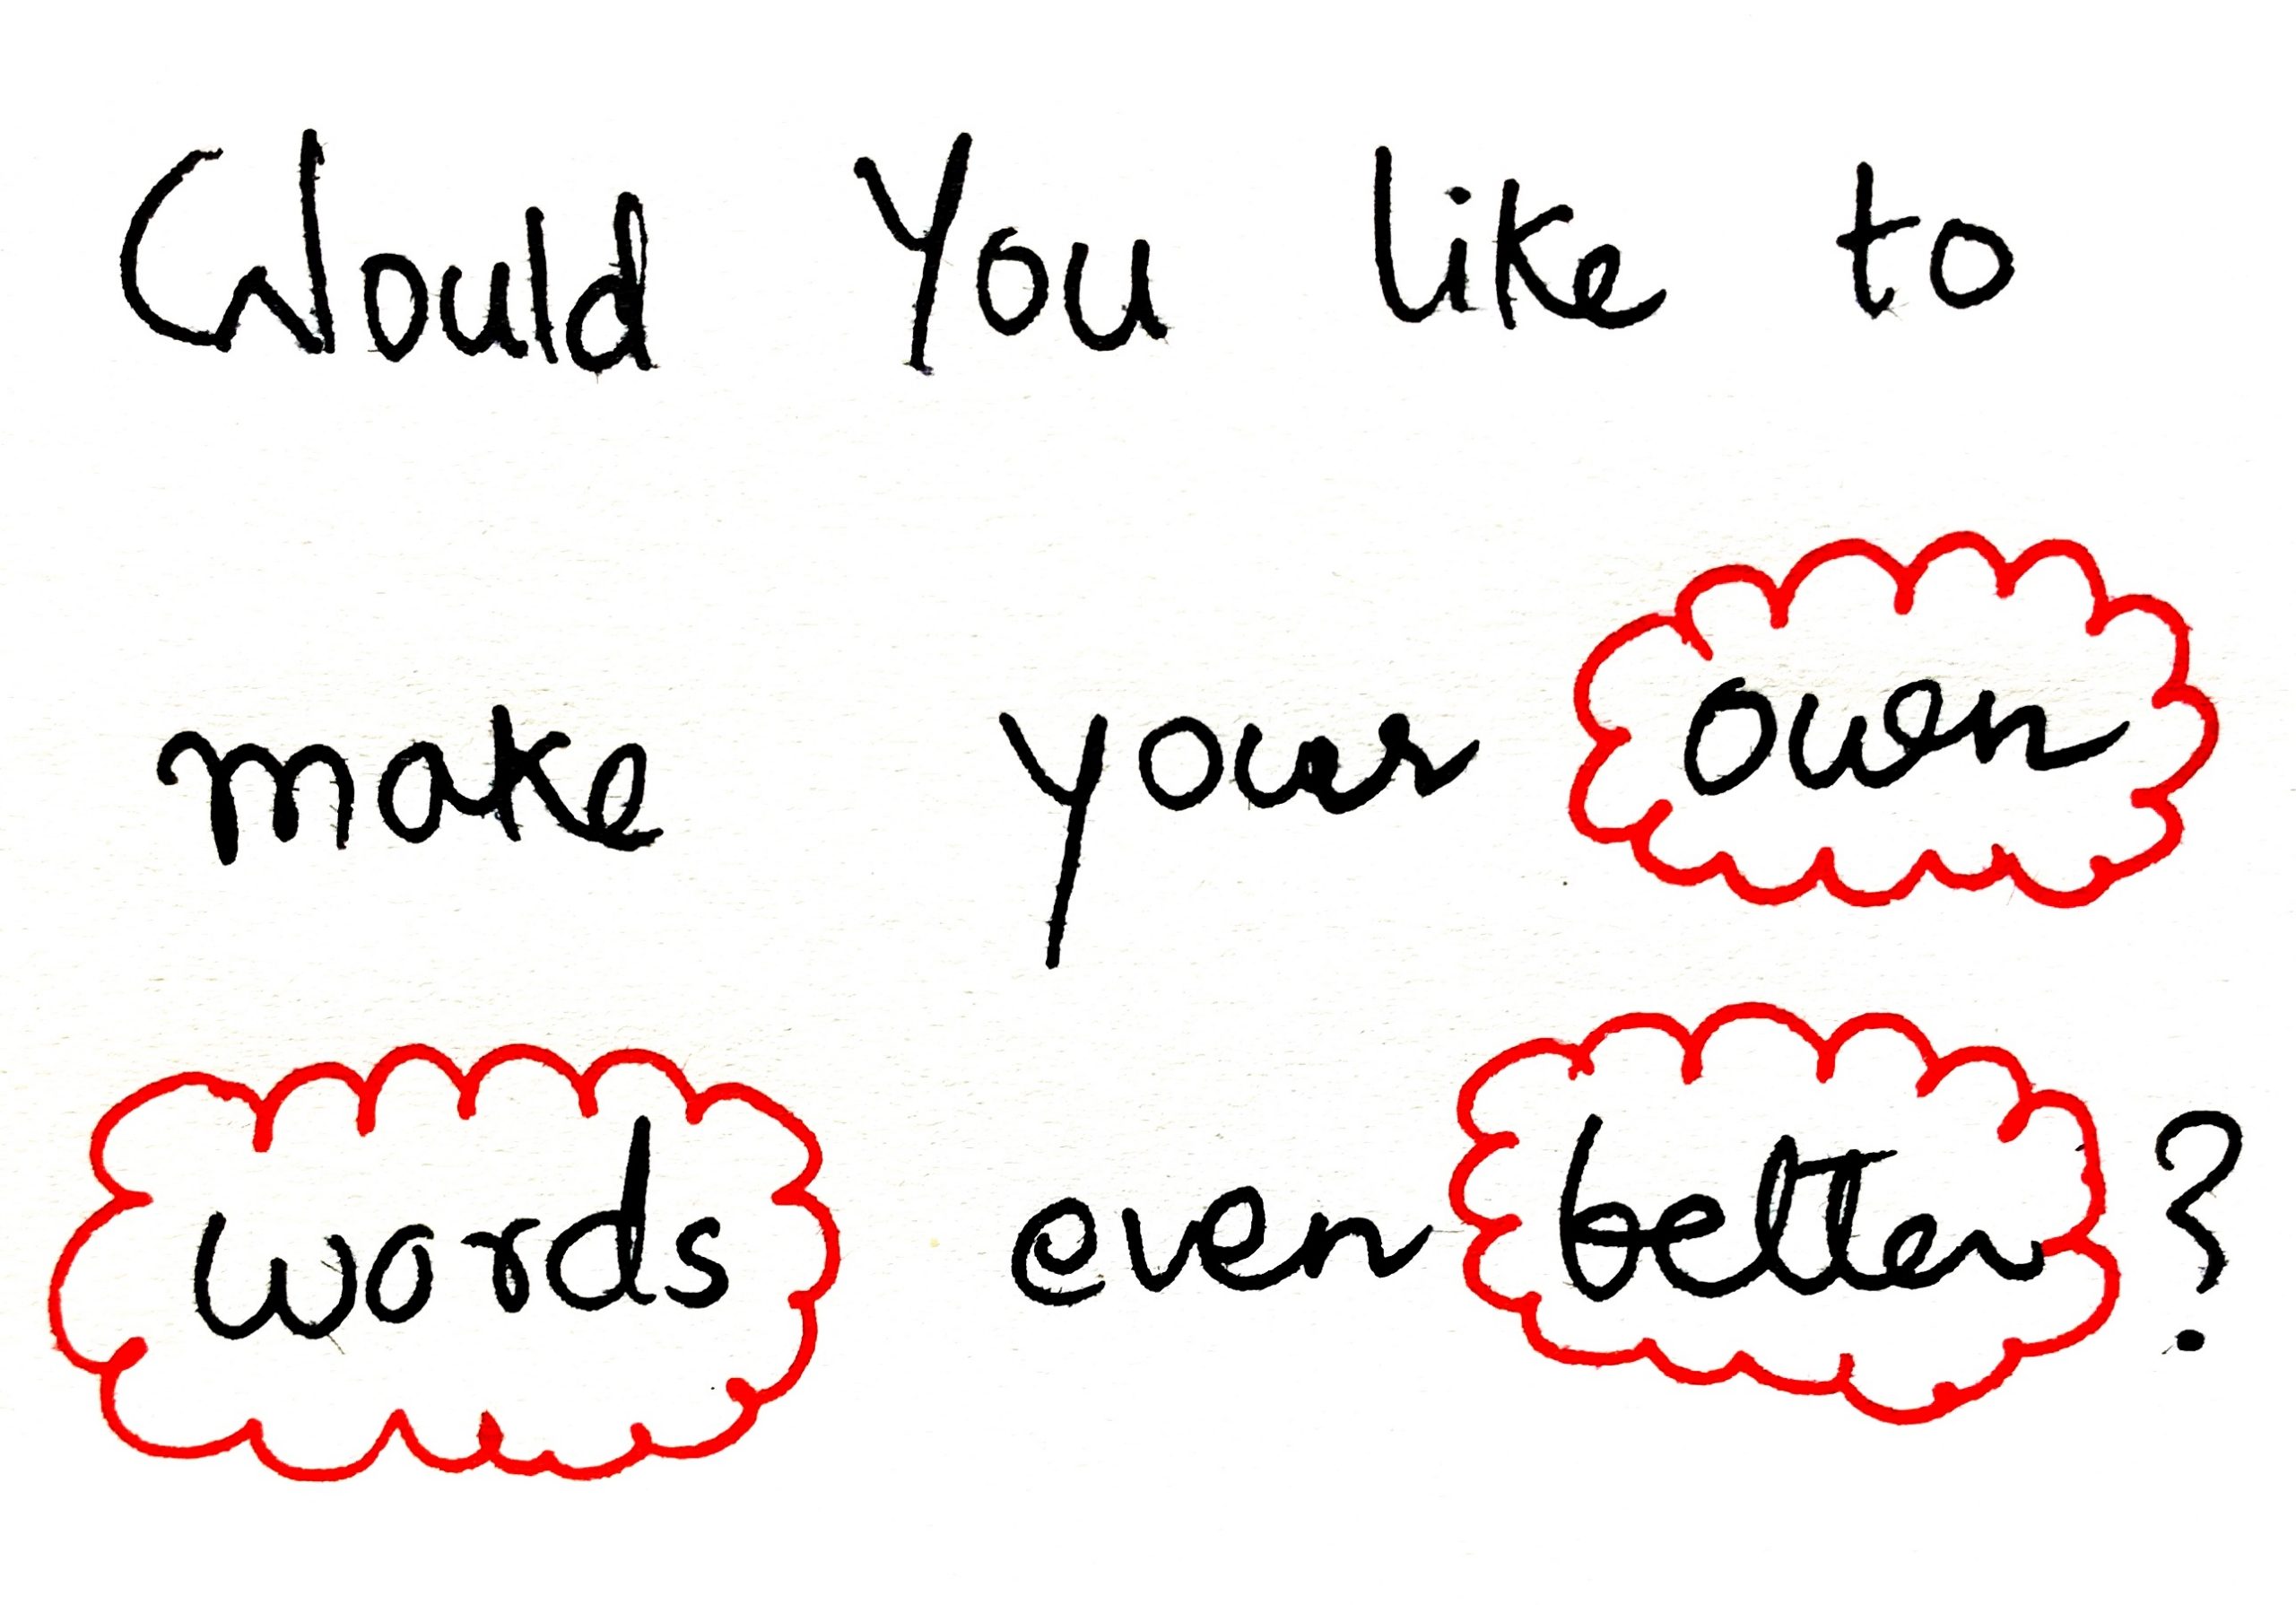 Would You like to
make your own
words even better?